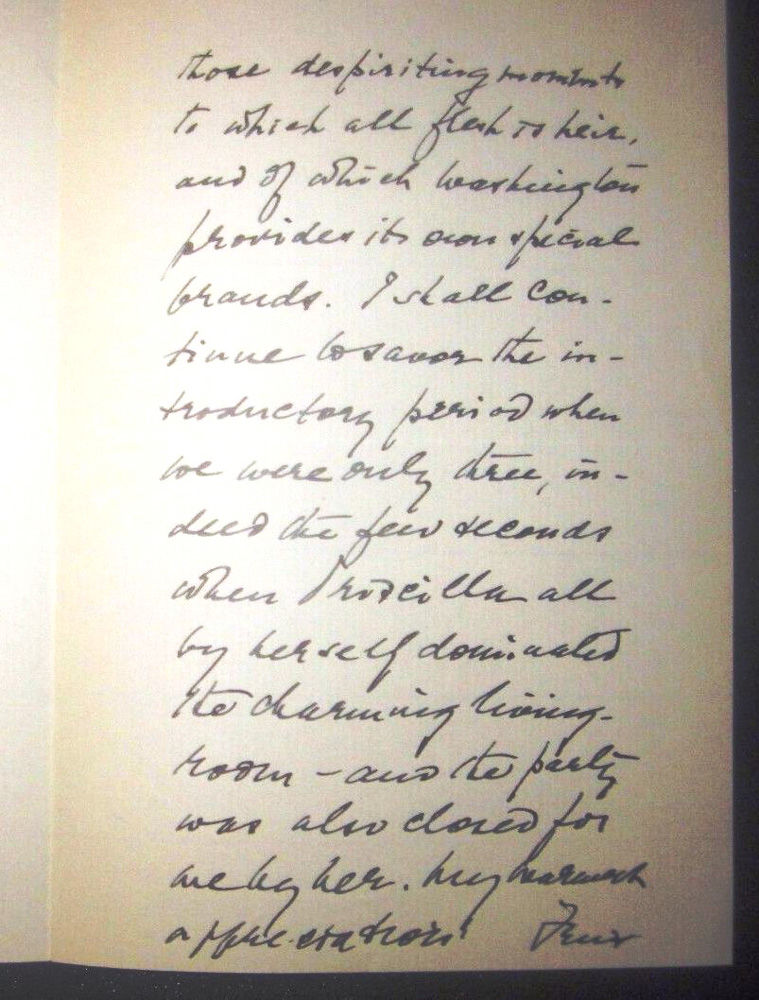 those despiriting moments
to which all flesh is heir,
and of which Washington
provides its own special
brands. I shall con-
tinue to savor the in-
troductory period when
we were only three, in-
deed the few seconds
when Priscilla all
by herself dominated
the charming living-
room – and the party
was also closed for
me by her. My warmest
appreciation!